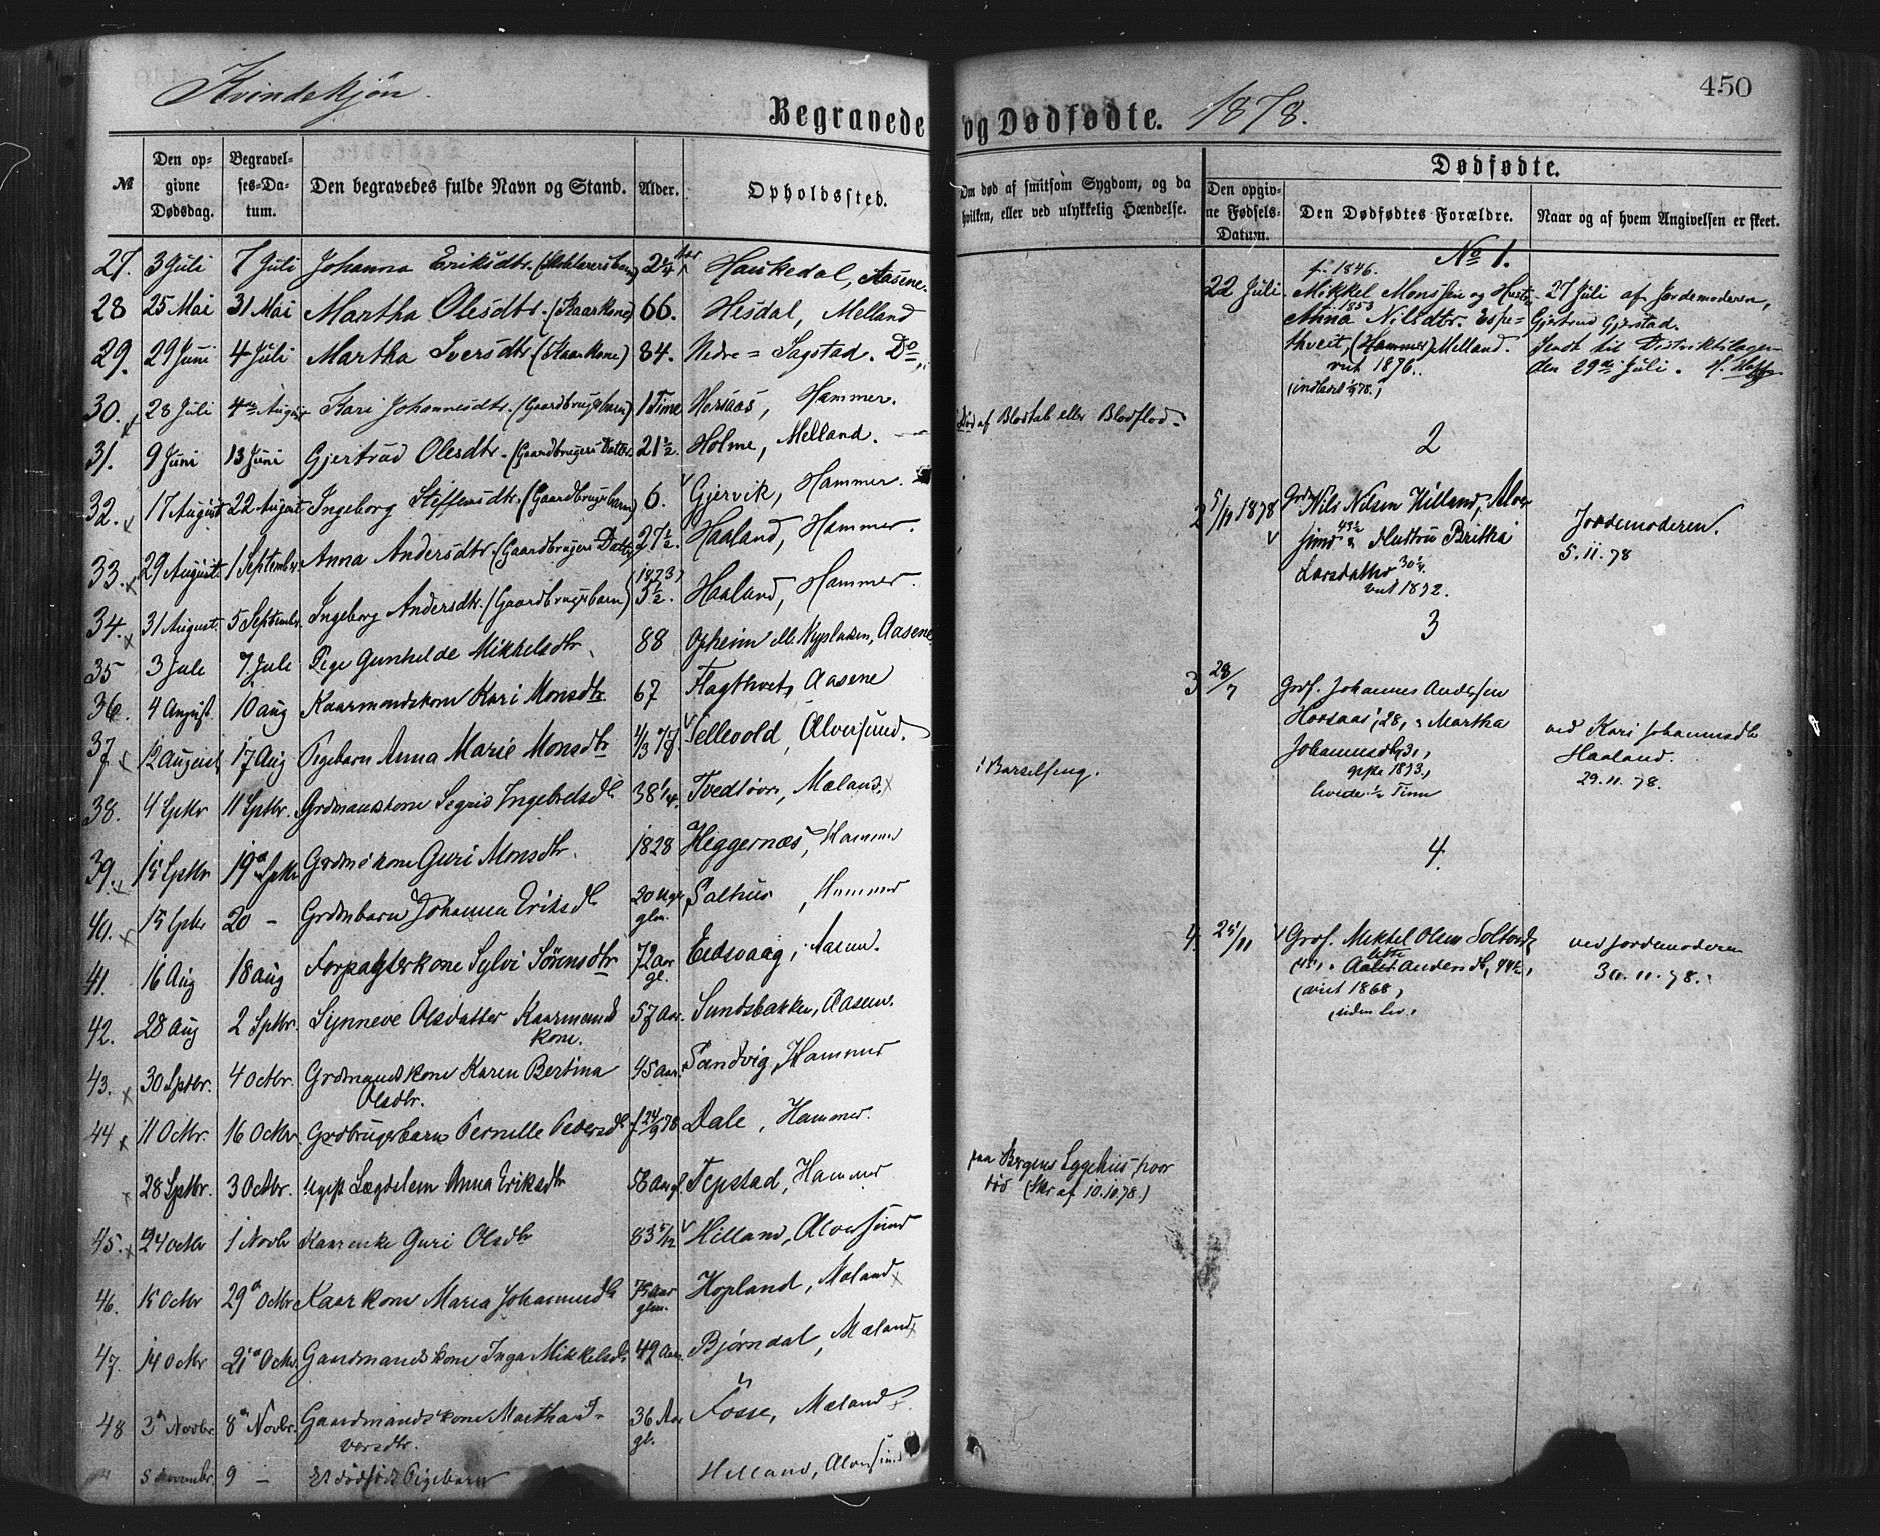 Kvindekjøn.
Begravede og Dødfødte. 1878.
450
№
Den opgivne Dødsdag.
Begravelses-Datum.
Den begravedes fulde Navn og Stand.
Alder.
Opholdssted.
Om død af smitsom Sygdom, og da hvilken, eller ved ulykkelig Hændelse.
Dødfødte.
Den opgivne Fødsels-Datum.
Den Dødfødtes Forældre.
Naar og af hvem Angivelsen er skeet.
27. 3 Juli 7 Juli Johanna Eriksdtr. 2 Aasene.
28 25 Mai 31 Mai Martha Olesdtr. (Kaarkone) 66. Hisdal, Melland
29. 29 Juni 4 Juli Martha Iversdtr (Kaarkone) 84. Nedre = Sagstad. Do
30. 28 Juli 4de August Kari Johannesdtr. (Gaardbrugsbarn) 1 Time Hammer. Død af Blodtab eller Blodflod.
31. 9 Juni 13 Juni Gjertrud Olesdtr. (Gaardbrugers Datter 21½ Holme, Melland.
32. 17 August 22 August Ingeborg Steffensdtr. (Gaardbrugsbarn) 6. Gjervik, Hammer.
33. 29 August 1 September Anna Andersdtr. (Gaardbrugers Datter 27½. Haaland, Hammer.
34. 31 August. 5 Septembr. Ingeborg Andersdtr. (Gaardbrugsbarn) (1873) 5½. Haaland, Hammer.
35 3 Jule 7. Jule Pige Gunhilde Mikkelsdtr. 88 Opheim Aasene
36. 4 August. 10 aug Kaarmandskone Kari Monsdtr 67 Flagthvet, Aasene
37. 12 August 17 Aug Pigebarn Anna Marie Monsdtr Tellevold, Alversund.
38. 4 Sptbr 11 Sptbr. Grdmandskone Segrid Ingebretsd. 38¼. Mæland. i Barselseng.
39. 15 Sptbr 19 Sptbr Grdmskone Guri Monsdtr. 1828 Hæggernæs, Hammer
40. 15 Sptbr 20 - Grdmbarn Johanna Eriksd 20 Uger glm. Salhus, Hammer
41. 16 Aug 18 aug Forpagterkone Sylvi Sørensdtr 72 Aar gl. Eidsvaag, Aasen.
42. 28 Aug 2 Sptbr. Synneve Olsdatter Kaarmands kone. 57 Aar. Sundsbakken, Aasene.
43. 30 Sptbr. 4 Octbr. Grdmandskone Karen Bertina Olsdtr. 45 Aar. Sandvig, Hammer
44 11 Octbr. 16 Octbr. Grdbrugerbarn Pernille Pedersd f 24/9 78 Dale, Hammer.
28 Sptbr. 3 Octbr. Ugift Lægdslem Anna Eriksdtr 58 Aar gl. Tepstad, Hammer paa Bergens Sygehus, hvor død (Skr af 10.10.78.)
45. 24 Octbr 1 Novbr Kaarenke Guri Olsdtr 83 5/12 Hilland, Alversund
46. 15 Octbr 29 Octbr Kaarkone Maria Johannesd 75 Aar glm. Hopland, Mæland
47. 14 Octbr 21 Octbr. Gaardmandskone Inga Mikkelsd. 49 Aar. Bjørndal, Mæland
48 3 Novbr. 8 Novbr. Gaardmandskone Martha Iversdtr. 36 Aar gl. Fosse, Mæland
5 Novembr. 9 - Et dødfødt Pigebarn Hilland, Alversund
No 1.
22 Juli f. 1846. Mikkel Monssen og Hustru
f. 1853
Anna Nilsdtr. Espethveit, (Hammer) Melland.
viet 1876.
27 Juli af Jordemoderen, Gjertrud Gjerstad.
Sendt til Distriktslægen den 29de Juli.
2
2 5/11 1878 Grdm Nils Nilsen Hilland, Alversund 43½ & Hustru Britha Larsdatter 30¼.
viet 1872.
Jordemoderen.
5.11.78
3
3 28/7 Grdf. Johannes Andersen Hosaas, 28, & Martha Johannesd 31,
gifte 1873,
levede ½ Time
ved Kari Johannesd Haaland.
29.11.78.
4.
4. 25/11 Grdf. Mikkel Olsen
Andersd, 44½,
(viet 1868,
ved Jordemoderen
30.11.78.